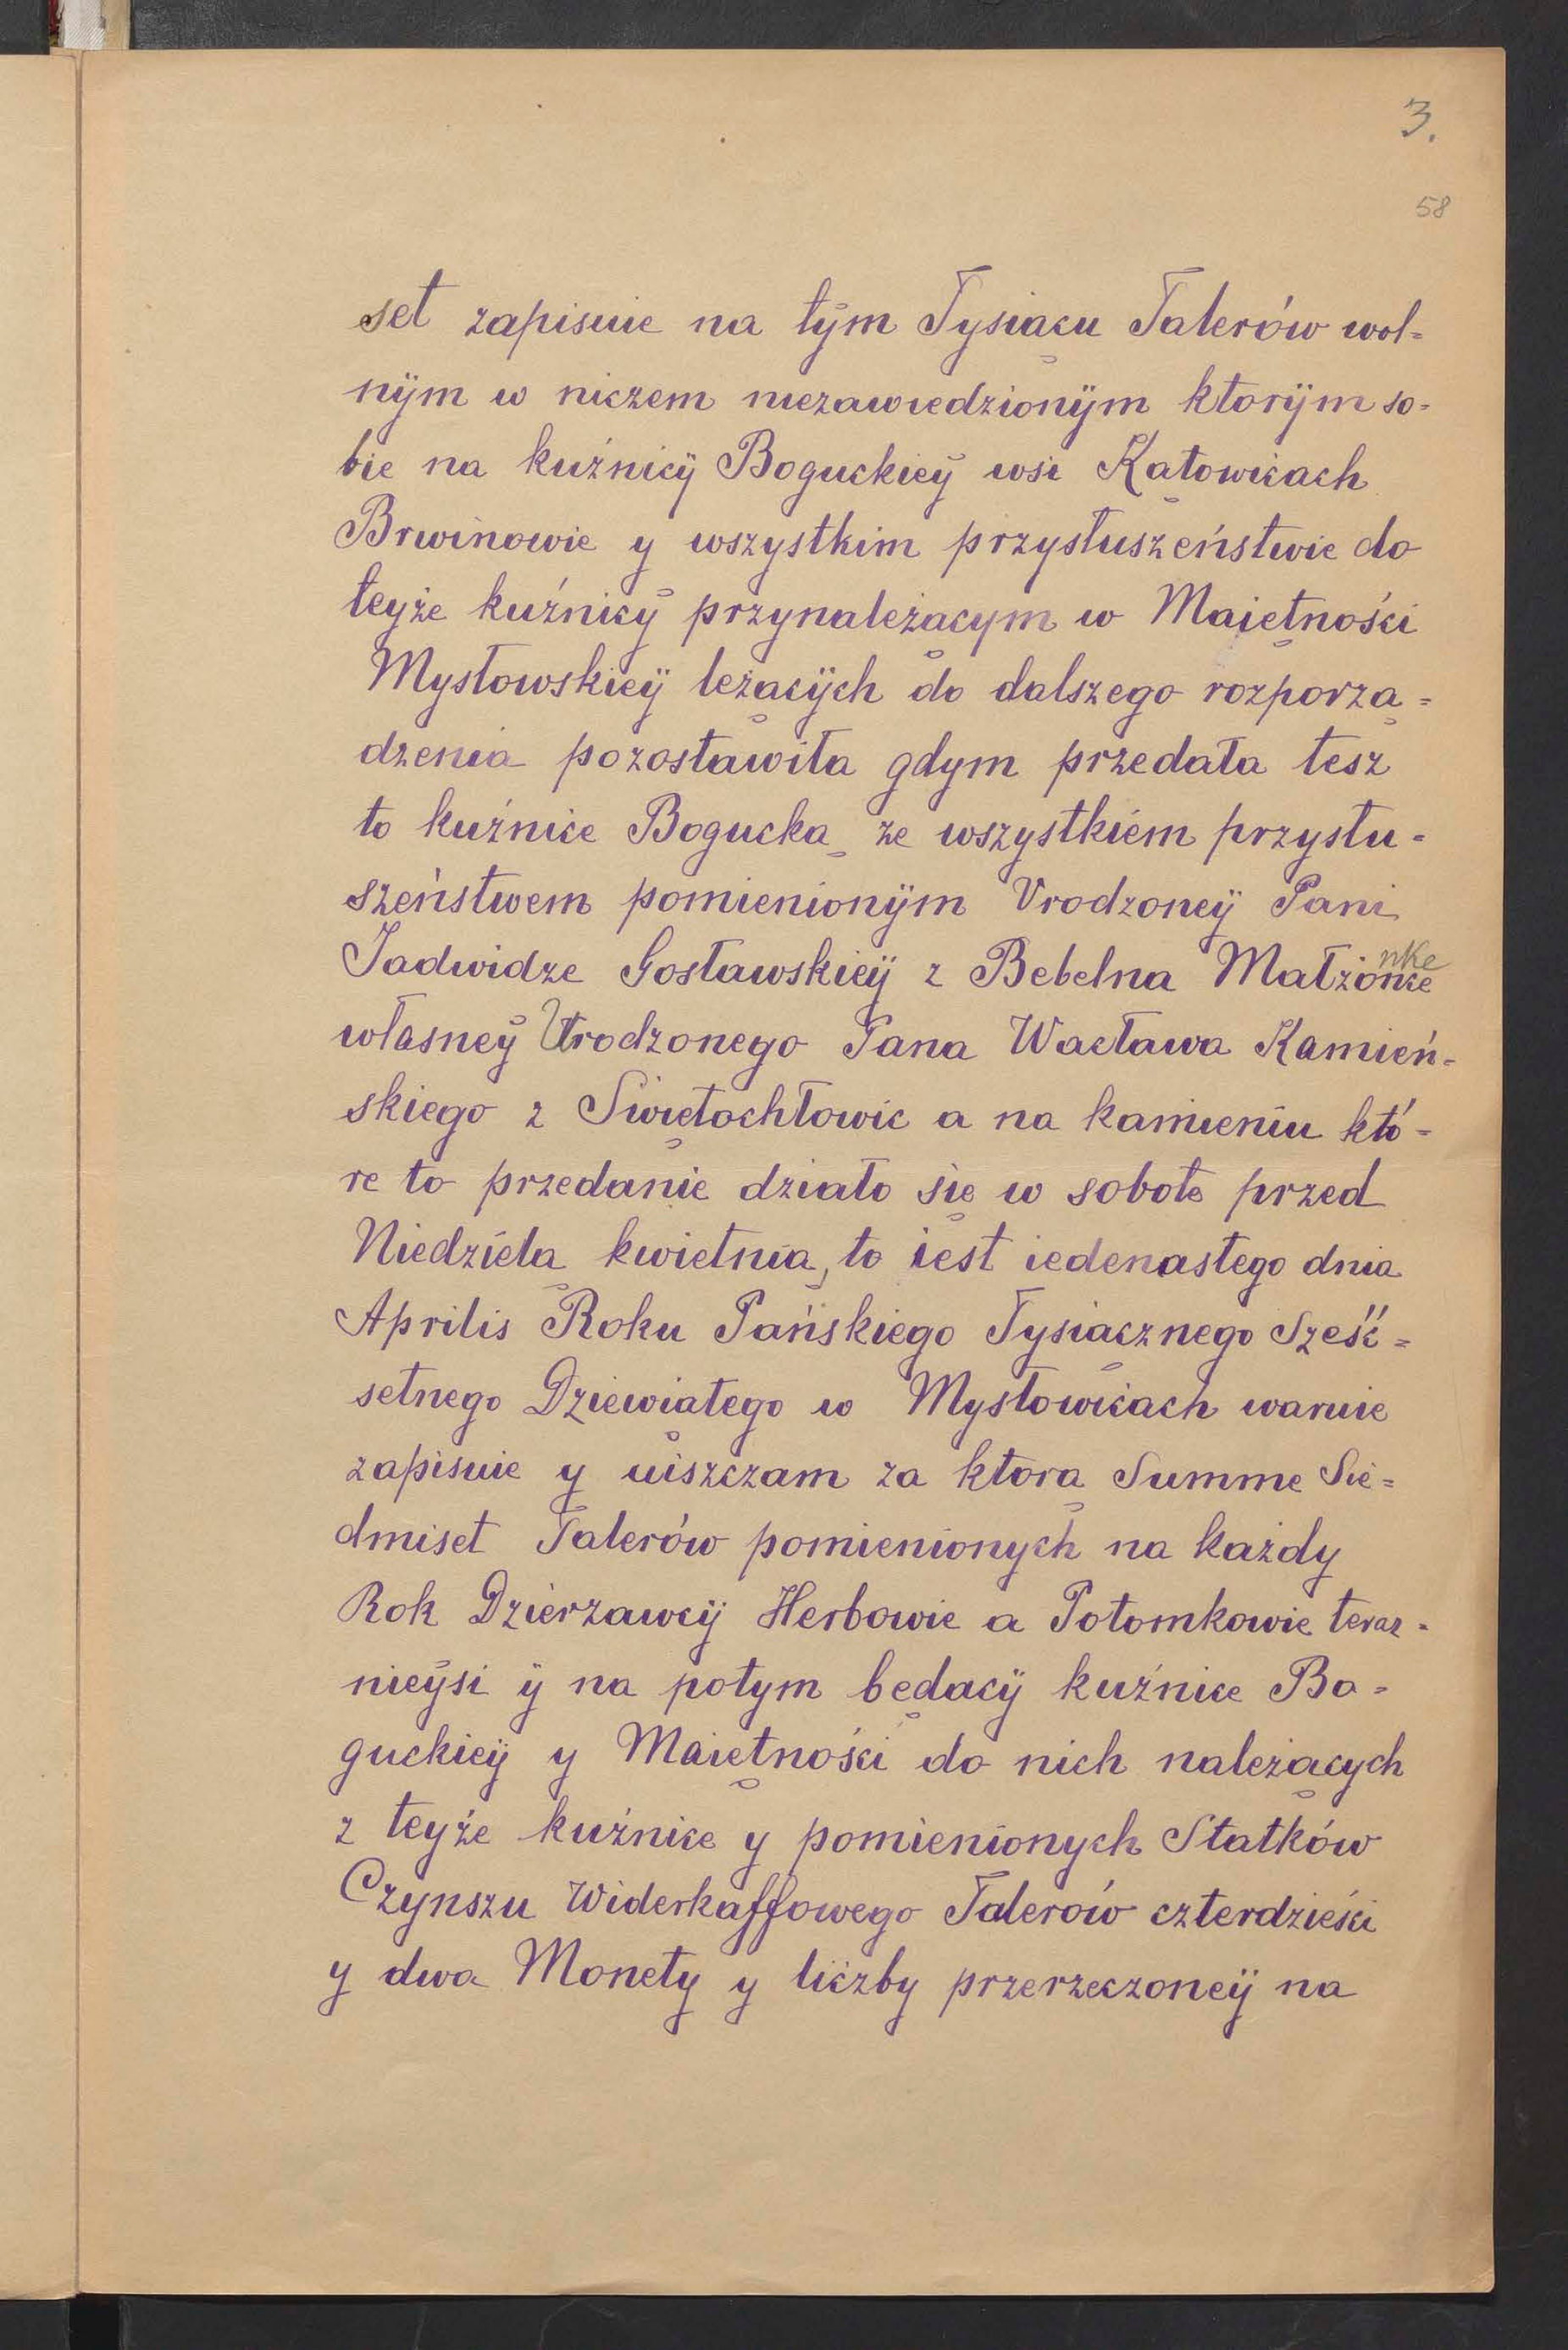 3.
58
set zapisuie na tÿm Tysiącu Talerów wol=
nÿm w niczem niezawiedzionÿm ktorÿm so=
bie na kuźnicÿ Boguckieÿ wsi Katowicach
Brwinowie y wszystkim przysłuszeństwie do
teyże kuźnicÿ przynależącym w Maiętności
Mysłowskieÿ leżącÿch do dalszego rozporzą=
dzenia pozostawiła gdym przedała tesz
to kuźnice Bogucką ze wszystkiem przysłu=
szeństwem pomienionÿm Vrodzoneÿ Pani
Jadwidze Gosławskieÿ z Bebelna Małżonce
nke
własneÿ Urodzonego Pana Wacława Kamień=
skiego z Swiętochłowic a na kamieniu któ=
re to przedanie działo się w sobote przed
Niedzielą kwietnią, to iest iedenastego dnia
Aprilis Roku Pańskiego Tysiącznego Sześć=
setnego Dziewiątego w Mysłowicach waruie
zapisuie y uiszczam za ktorą Summe Sie=
dmiset Talerów pomienionych na każdy
Rok Dzierzawcÿ Herbowie a Potomkowie teraz=
nieÿsi ÿ na potym będącÿ kuźnice Bo=
guckieÿ y Maiętności do nich należących
z teyże kuźnice y pomienionych Statków
Czynszu Widerkaffowego Talerów czterdzieści
y dwa Monety y liczby przerzeczoneÿ na